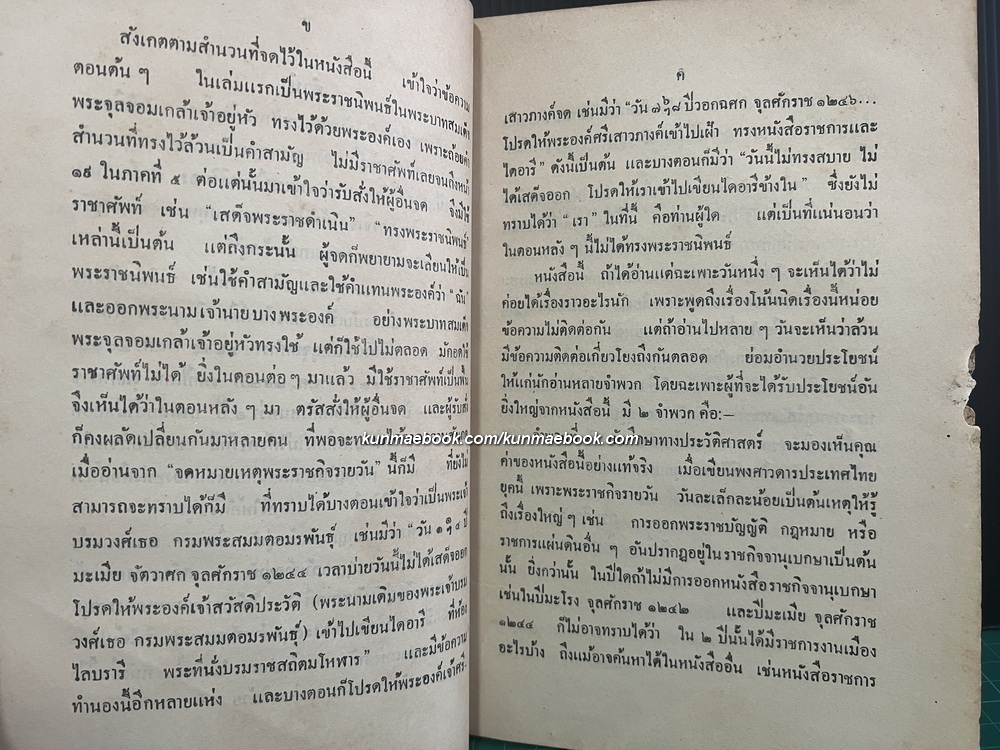 ข
สังเกตตามสำนวนที่จดไว้ในหนังสือนี้ เข้าใจว่าข้อความ
ตอนต้น ๆ ในเล่มแรกเป็นพระราชนิพนธ์ในพระบาทสมเด็จ
พระจุลจอมเกล้าเจ้าอยู่หัว ทรงไว้ด้วยพระองค์เอง เพราะถ้อยคำ
สำนวนที่ทรงไว้ล้วนเป็นคำสามัญ ไม่มีราชาศัพท์เลยจนถึงหน้า
๑๙ ในภาคที่ ๕ ต่อแต่นั้นมาเข้าใจว่ารับสั่งให้ผู้อื่นจด จึงมีใช้
ราชาศัพท์ เช่น “เสด็จพระราชดำเนิน” “ทรงพระราชนิพนธ์”
เหล่านี้เป็นต้น แต่ถึงกระนั้น ผู้จดก็พยายามจะเลียนให้เป็น
พระราชนิพนธ์ เช่นใช้คำสามัญและใช้คำแทนพระองค์ว่า “ฉัน”
และออกพระนามเจ้านายบางพระองค์ อย่างพระบาทสมเด็จ
พระจุลจอมเกล้าเจ้าอยู่หัวทรงใช้ แต่ก็ใช้ไปไม่ตลอด มักอดใช้
ราชาศัพท์ไม่ได้ ยิ่งในตอนต่อ ๆ มาแล้ว มีใช้ราชาศัพท์เป็นพื้น
จึงเห็นได้ว่าในตอนหลัง ๆ มา ตรัสสั่งให้ผู้อื่นจด และผู้รับสั่ง
ก็คงผลัดเปลี่ยนกันมาหลายคน ที่พอจะ
เมื่ออ่านจาก “จดหมายเหตุพระราชกิจรายวัน” นี้ก็มี ที่ยังไม่
สามารถจะทราบได้ก็มี ที่ทราบได้บางตอนเข้าใจว่าเป็นพระเจ้า
บรมวงศ์เธอ กรมพระสมมตอมรพันธุ์ เช่นมีว่า “วัน ปี
มะเมีย จัตวาศก จุลศักราช ๑๒๔๔ เวลาบ่ายวันนี้ไม่ได้เสด็จออก
โปรดให้พระองค์เจ้าสวัสดิประวัติ (พระนามเดิมของพระเจ้าบรม
วงศ์เธอ กรมพระสมมตอมรพันธุ์) เข้าไปเขียนไดอารี ที่ห้อง
ไลบรารี พระที่นั่งบรมราชสถิตมโหฬาร” และมีข้อความ
ทำนองนี้อีกหลายแห่ง และบางตอนก็โปรดให้พระองค์เจ้าศรี-
ค
เสาวภางค์จด เช่นมีว่า “วัน ปีวอกฉศก จุลศักราช ๑๒๔๖...
โปรดให้พระองค์ศรีเสาวภางค์เข้าไปเฝ้า ทรงหนังสือราชการและ
ไดอารี” ดังนี้เป็นต้น และบางตอนก็มีว่า “วันนี้ไม่ทรงสบาย ไม่
ได้เสด็จออก โปรดให้เราเข้าไปเขียนไดอารีข้างใน” ซึ่งยังไม่
ทราบได้ว่า “เรา” ในที่นี้ คือท่านผู้ใด แต่เป็นที่แน่นอนว่า
ในตอนหลัง ๆ นี้ไม่ได้ทรงพระราชนิพนธ์
หนังสือนี้ ถ้าได้อ่านแต่ฉะเพาะวันหนึ่ง ๆ จะเห็นได้ว่าไม่
ค่อยได้เรื่องราวอะไรนัก เพราะพูดถึงเรื่องโน้นนิดเรื่องนี้หน่อย
ข้อความไม่ติดต่อกัน แต่ถ้าอ่านไปหลาย ๆ วันจะเห็นว่าล้วน
มีข้อความติดต่อเกี่ยวโยงถึงกันตลอด ย่อมอำนวยประโยชน์
ให้แก่นักอ่านหลายจำพวก โดยฉะเพาะผู้ที่จะได้รับประโยชน์อัน
ยิ่งใหญ่จากหนังสือนี้ มี ๒ จำพวก คือ:—
kunmaebook.com/kunmaebook.com
ศึกษาทางประวัติศาสตร์ จะมองเห็นคุณ
ค่าของหนังสือนี้อย่างแท้จริง เมื่อเขียนพงศาวดารประเทศไทย
ยุคนี้ เพราะพระราชกิจรายวัน วันละเล็กละน้อยเป็นต้นเหตุให้รู้
ถึงเรื่องใหญ่ ๆ เช่น การออกพระราชบัญญัติ กฎหมาย หรือ
ราชการแผ่นดินอื่น ๆ อันปรากฏอยู่ในราชกิจจานุเบกษาเป็นต้น
นั้น ยิ่งกว่านั้น ในปีใดถ้าไม่มีการออกหนังสือราชกิจจานุเบกษา
เช่นในปีมะโรง จุลศักราช ๑๒๔๒ และปีมะเมีย จุลศักราช
๑๒๔๔ ก็ไม่อาจทราบได้ว่า ใน ๒ ปีนั้นได้มีราชการงานเมือง
อะไรบ้าง ถึงแม้อาจค้นหาได้ในหนังสืออื่น เช่นหนังสือราชการ